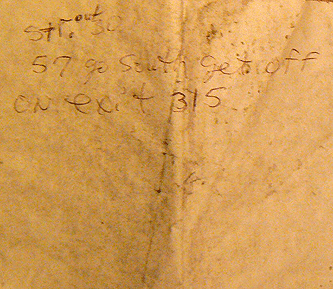 str. out 50
57 go South get off
on exit 315